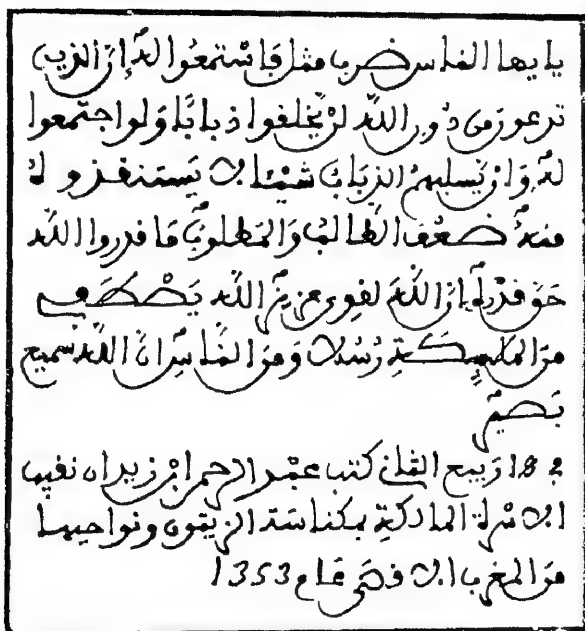 يايها الناس ضرب مثل فاستمعوا له إن الذين
تدعون من دون الله لن يخلقوا ذبابا ولو اجتمعوا
له وإن يسلبهم الذباب شيئا لا يستنقذوه
منه ضعف الطالب والمطلوب ما قدروا الله
حق قدره إن الله لقوي عزيز الله يصطفي
من الملئكة رسلا ومن الناس إن الله سميع
بصير
182 ربيع الثاني كتب عبد الرحمن ابن زيدان نقيب
الاسرة المالكة بمكناسة الزيتون ونواحيها
من المغرب الاقصى عام 1353